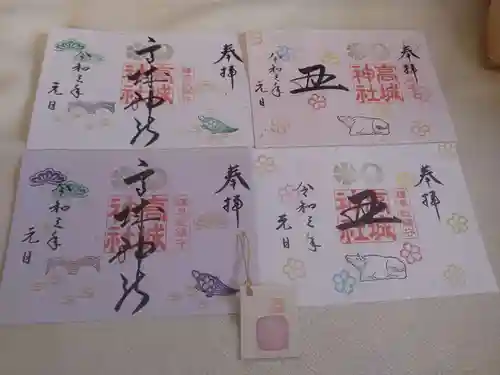 奉拝
高城神社
令和三年
元日
奉拝
丑
高城
神社
令和三年
元日
奉拝
高城神社
令和三年
元日
奉拝
丑
高城
神社
令和三年
元日